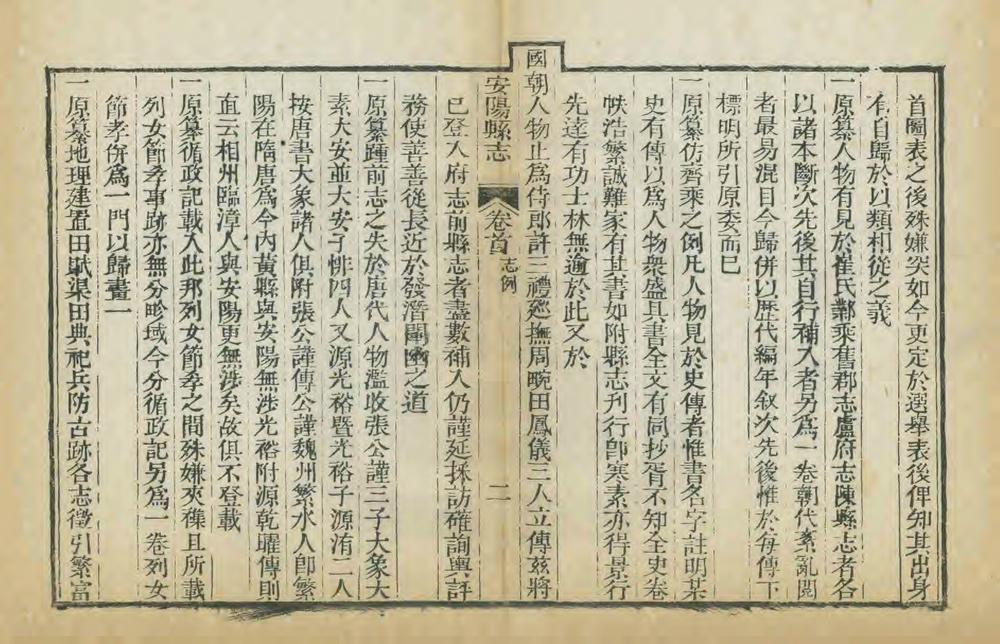 首圖表之後殊嫌突如今更定於選舉表後俾知其出身
有自歸於以類相從之義
一原纂人物有見於崔氏鄴乘舊郡志盧府志陳縣志者各
以諸本斷次先後其自行補入者另爲一卷朝代紊亂閱
者最易混目今歸併以歷代編年叙次先後惟於每傳下
標明所引原委而已
一原纂仿齊乘之例凡人物見於史傳者惟書名字註明某
史有傳以爲人物衆盛且書全文有同抄胥不知全史卷
帙浩繁誠難家有其書如附縣志刊行卽寒素亦得景行
先達有功士林無逾於此又於
國朝人物止爲侍郎許三禮廵撫周畹田鳳儀三人立傳兹將
安陽縣志 卷首 志例 二
已登入府志前縣志者盡數補入仍謹延採訪確詢輿評
務使善善從長近於發潛闡幽之道
一原纂踵前志之失於唐代人物濫收張公謹三子大象大
素大安並大安子悱四人又源光裕暨光裕子源洧二人
按唐書大象諸人俱附張公謹傳公謹魏州繁水人卽繁
陽在隋唐爲今內黃縣與安陽無涉光裕附源乾曜傳則
直云相州臨漳人與安陽更無涉矣故俱不登載
一原纂循政記載入此那列女節孝之間殊嫌夾襍且所載
列女節孝事跡亦無分畛域今分循政記另爲一卷列女
節孝併爲一門以歸畫一
一原纂地理建置田賦渠田典祀兵防古跡各志徵引繁富